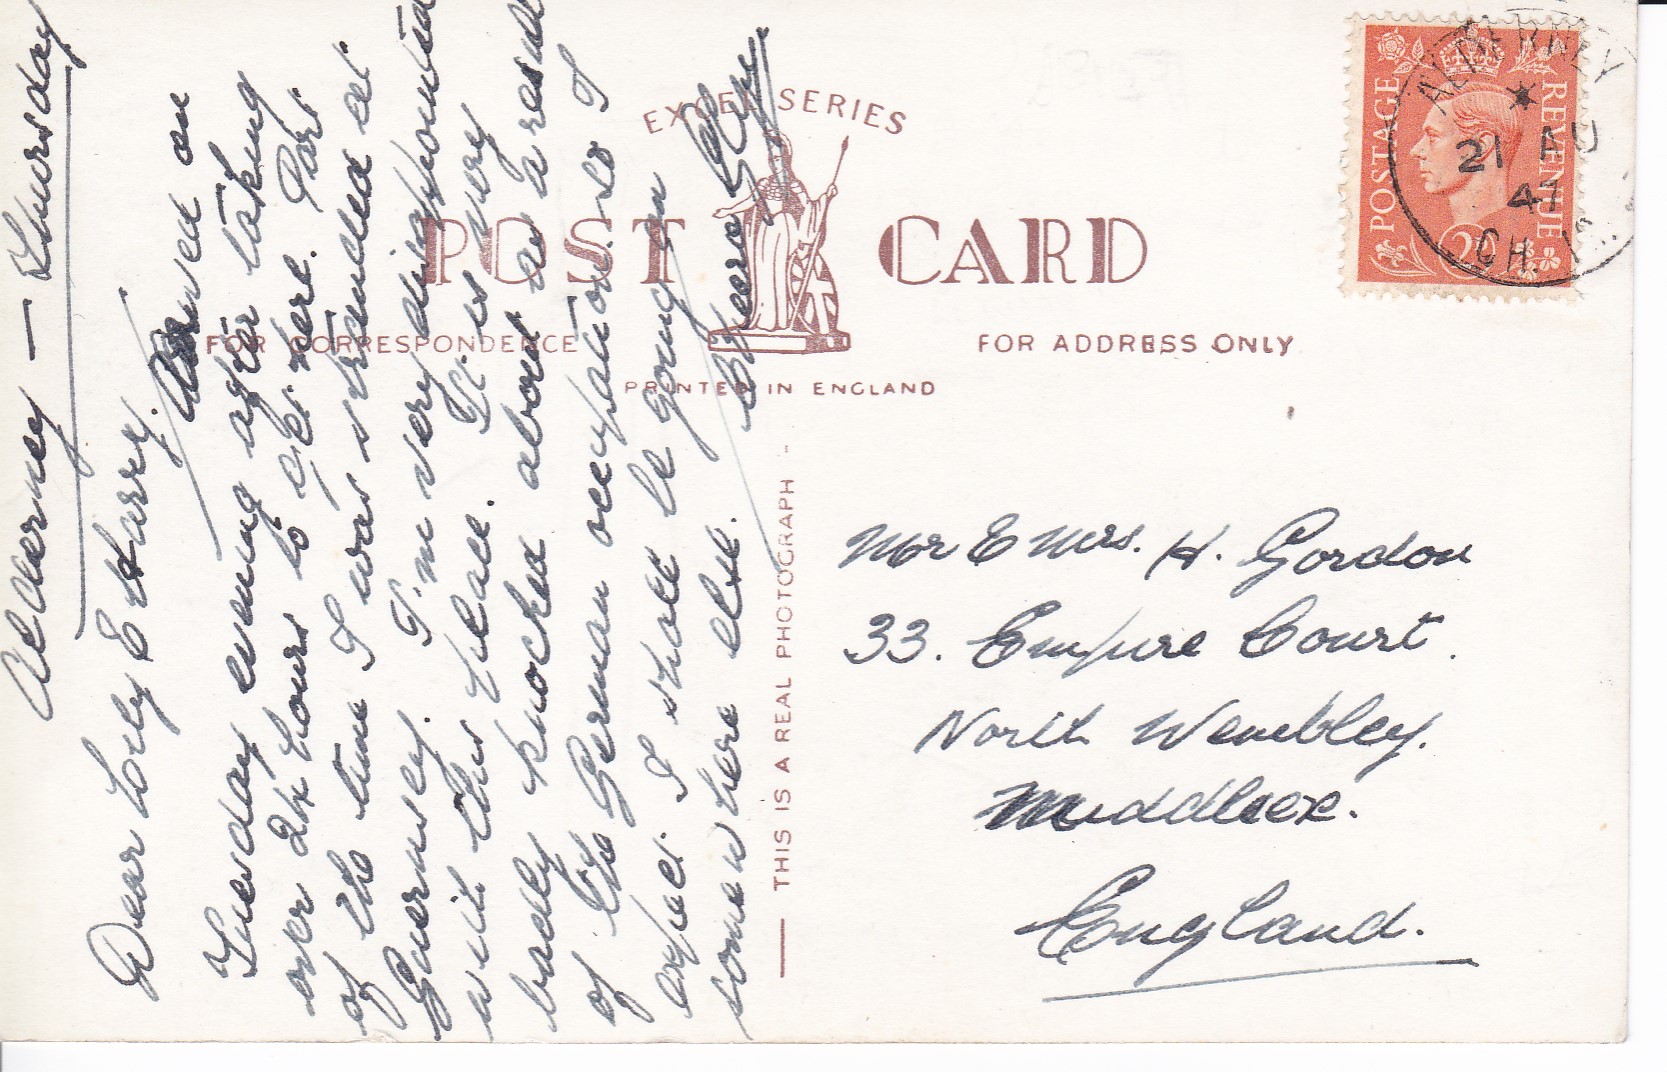 Alderney — Thursday
Dear Loly & Harry.
Arrived on
Tuesday evening after taking
over 24 hours to get here. Part
of the time I was stranded at
Guernsey. I'm very disappointed
with this place. It is very
badly knocked about as a result
of the German occupation. So I
expect I shall be going on
somewhere else. Cheerio
EXCEL SERIES
POST CARD
FOR CORRESPONDENCE
FOR ADDRESS ONLY
PRINTED IN ENGLAND
THIS IS A REAL PHOTOGRAPH
POSTAGE
REVENUE
2D
ALDERNEY
21 AU
47
CH. IS.
Mr & Mrs. H. Gordon
33. Empire Court.
North Wembley.
Middlesex.
England.